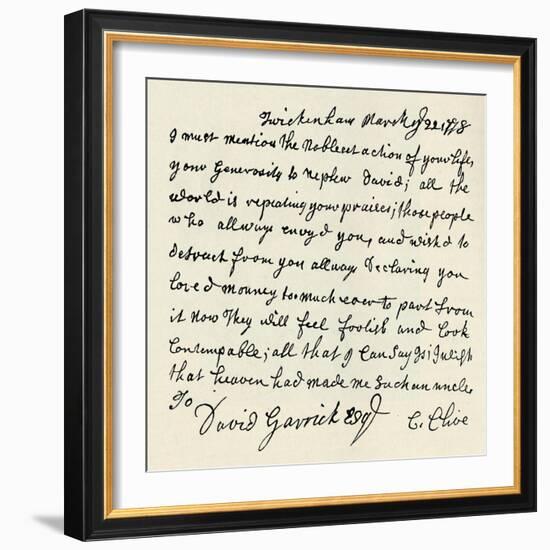 Twickenham March ye 22, 1778
I must mention the Nobleest action of your life,
your Generosity to Nephew David; all the
world is repeating your praises; those people
who allways envyd you, and wishd to
detract from you allways Declaring you
loved mouney too much ever to part from
it now They will feel foolish and look
Contempable; all that I Can Say Is; I wish
that heaven had made me Such an uncle.
To
David Garrick Esqr C. Clive